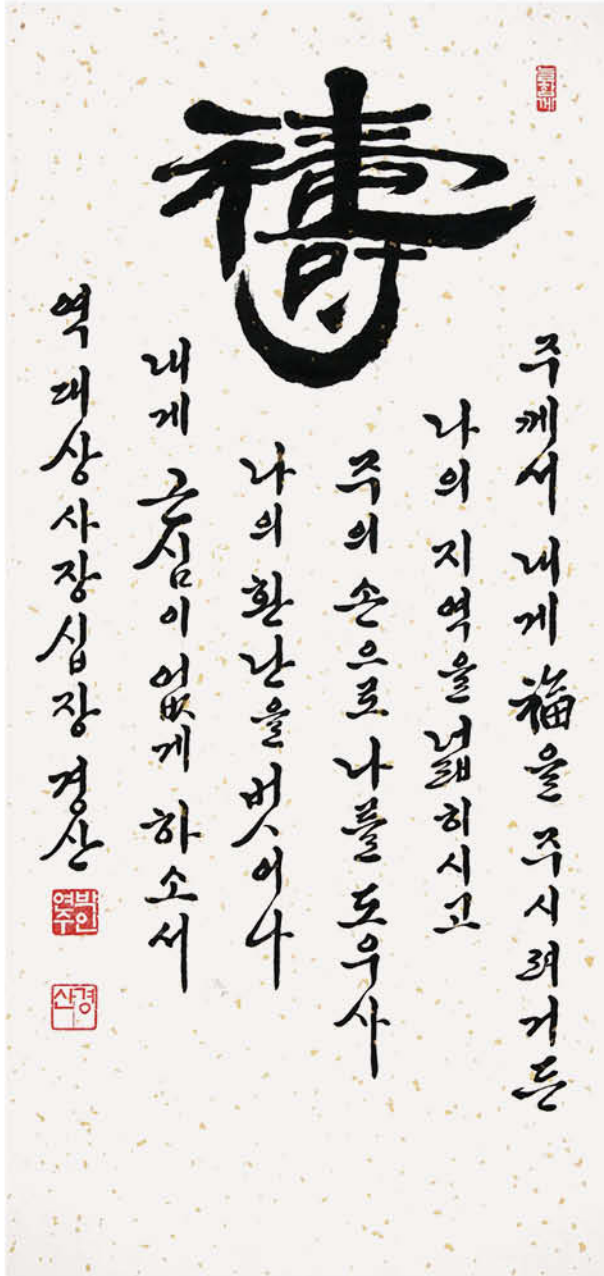 禱
늘함께
주께서 내게 福을 주시려거든
나의 지역을 넓히시고
주의 손으로 나를 도우사
나의 환난을 벗어나
내게 근심이 없게 하소서
역대상사장십장 경산
박연주인
경산